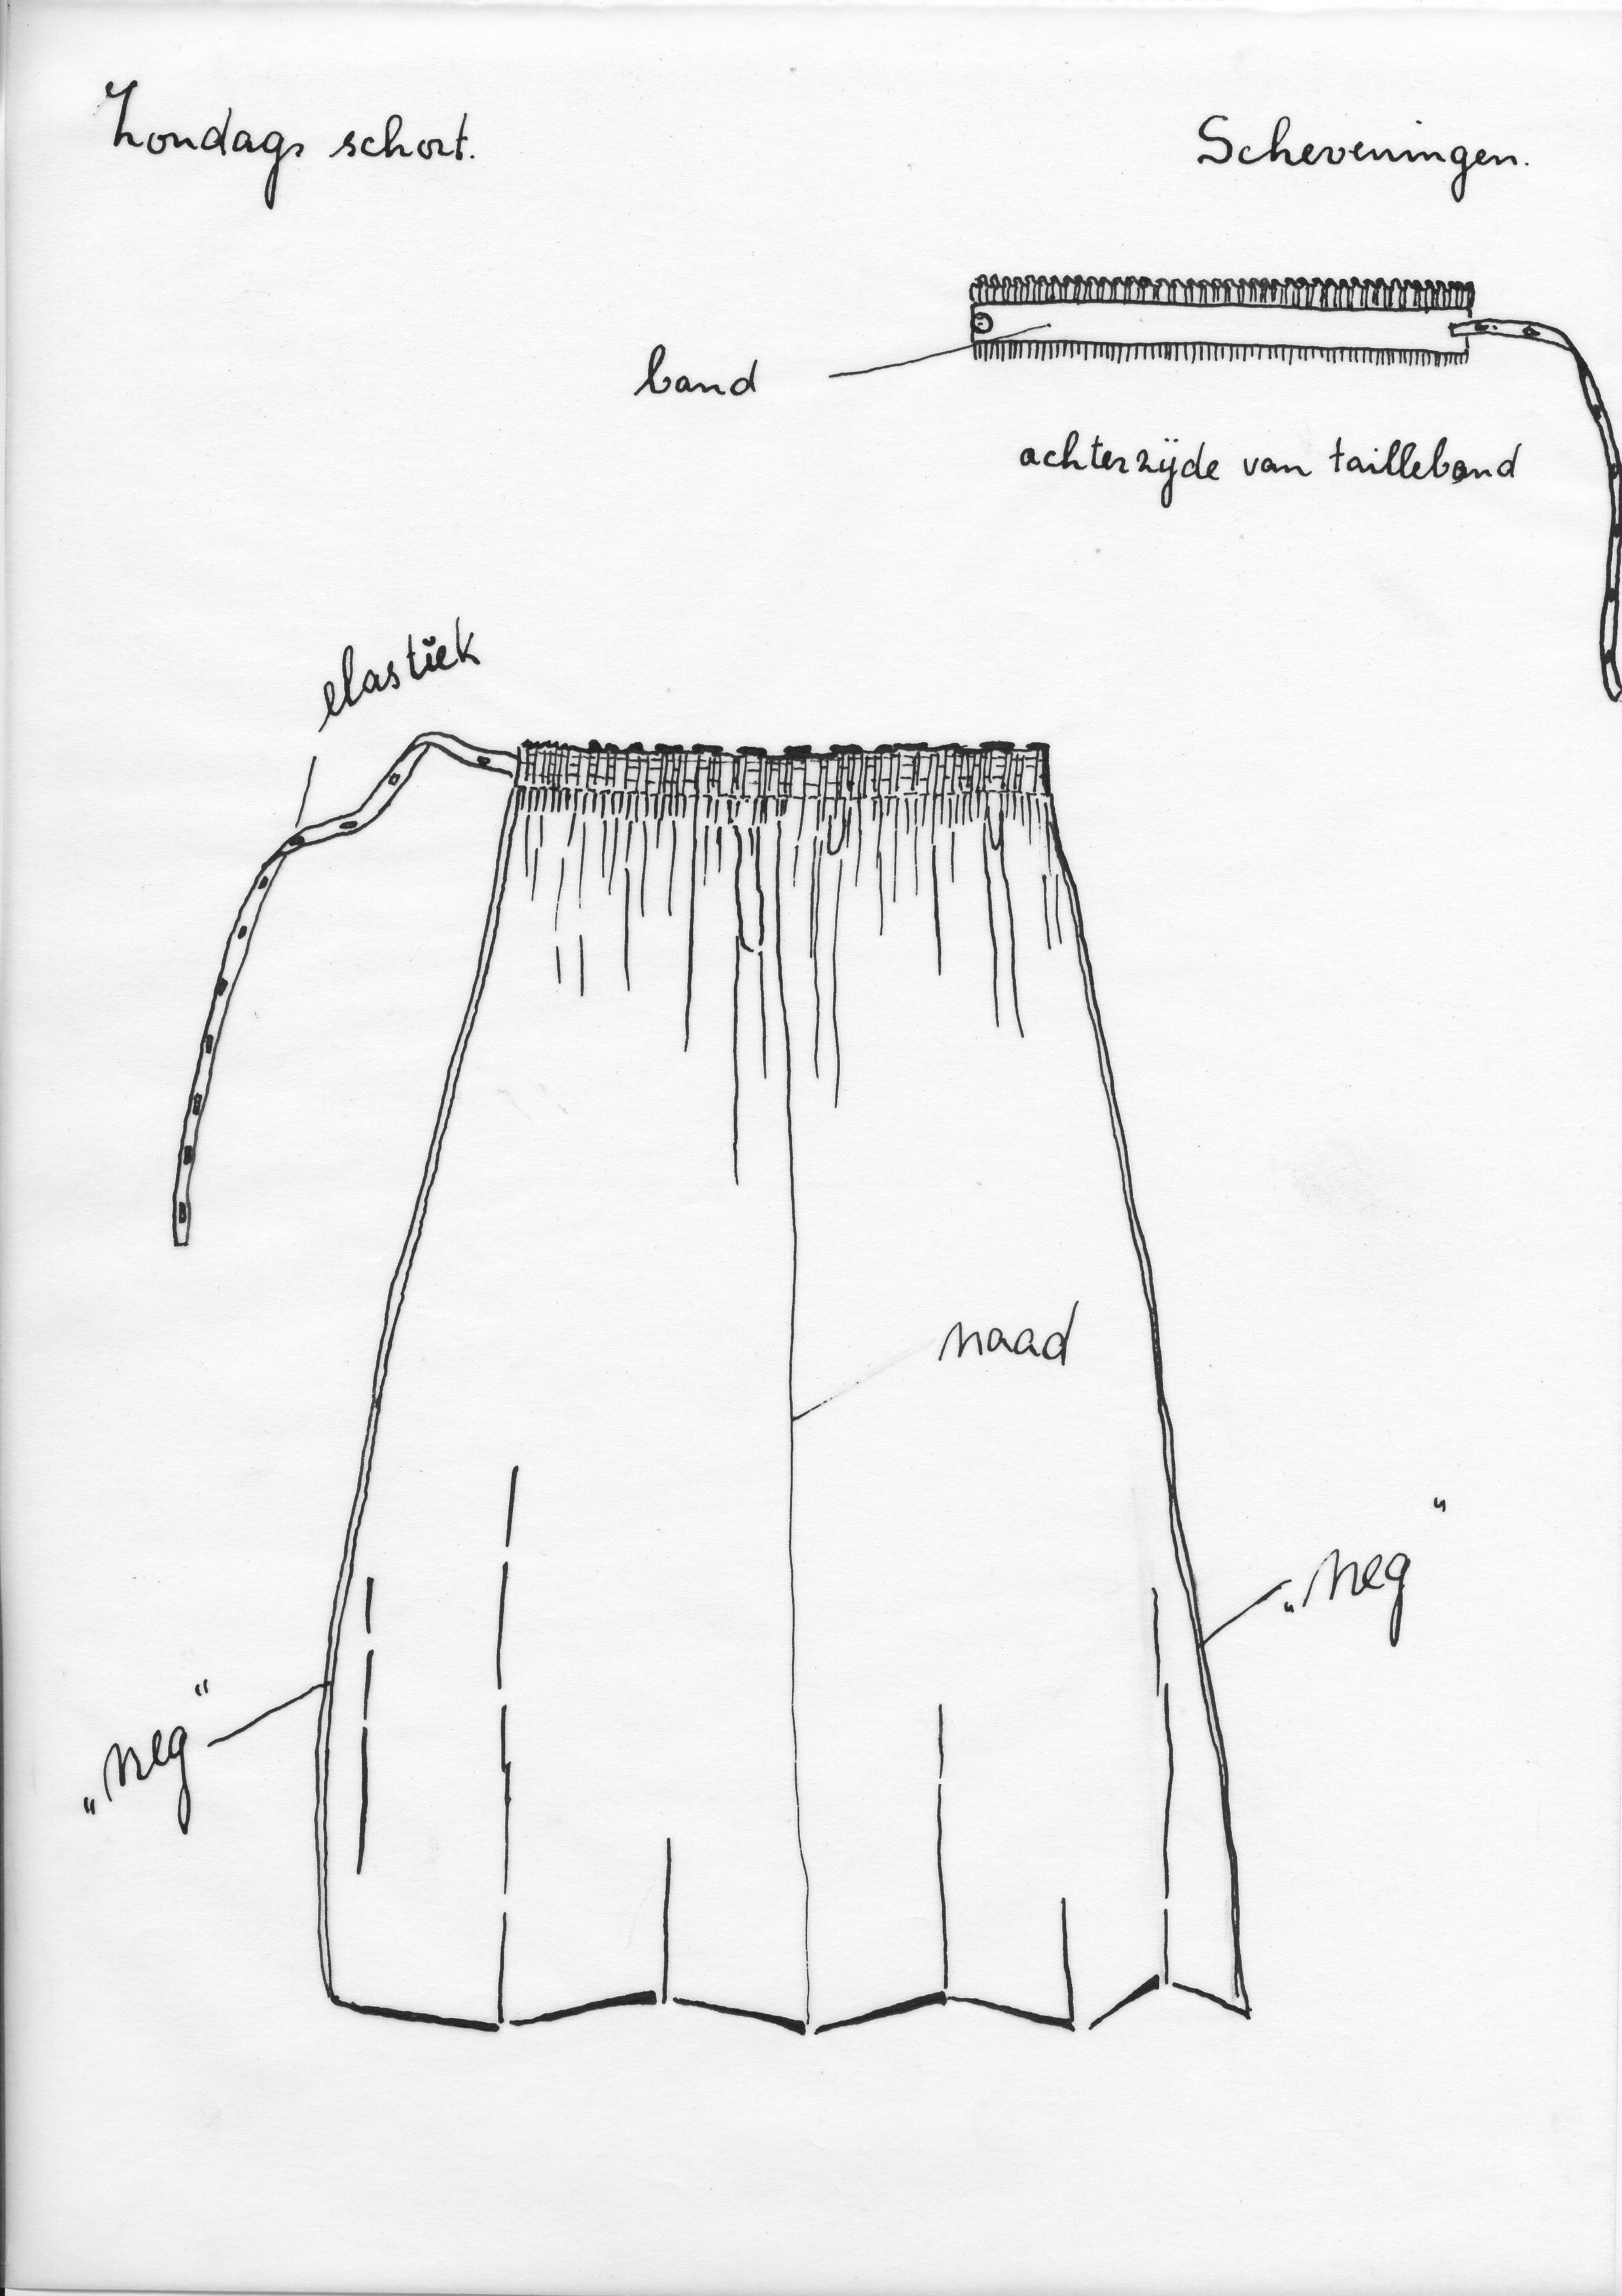 Zondags schort.
Scheveningen.
band
achterzijde van tailleband
elastiek
naad
„neg“
„neg“